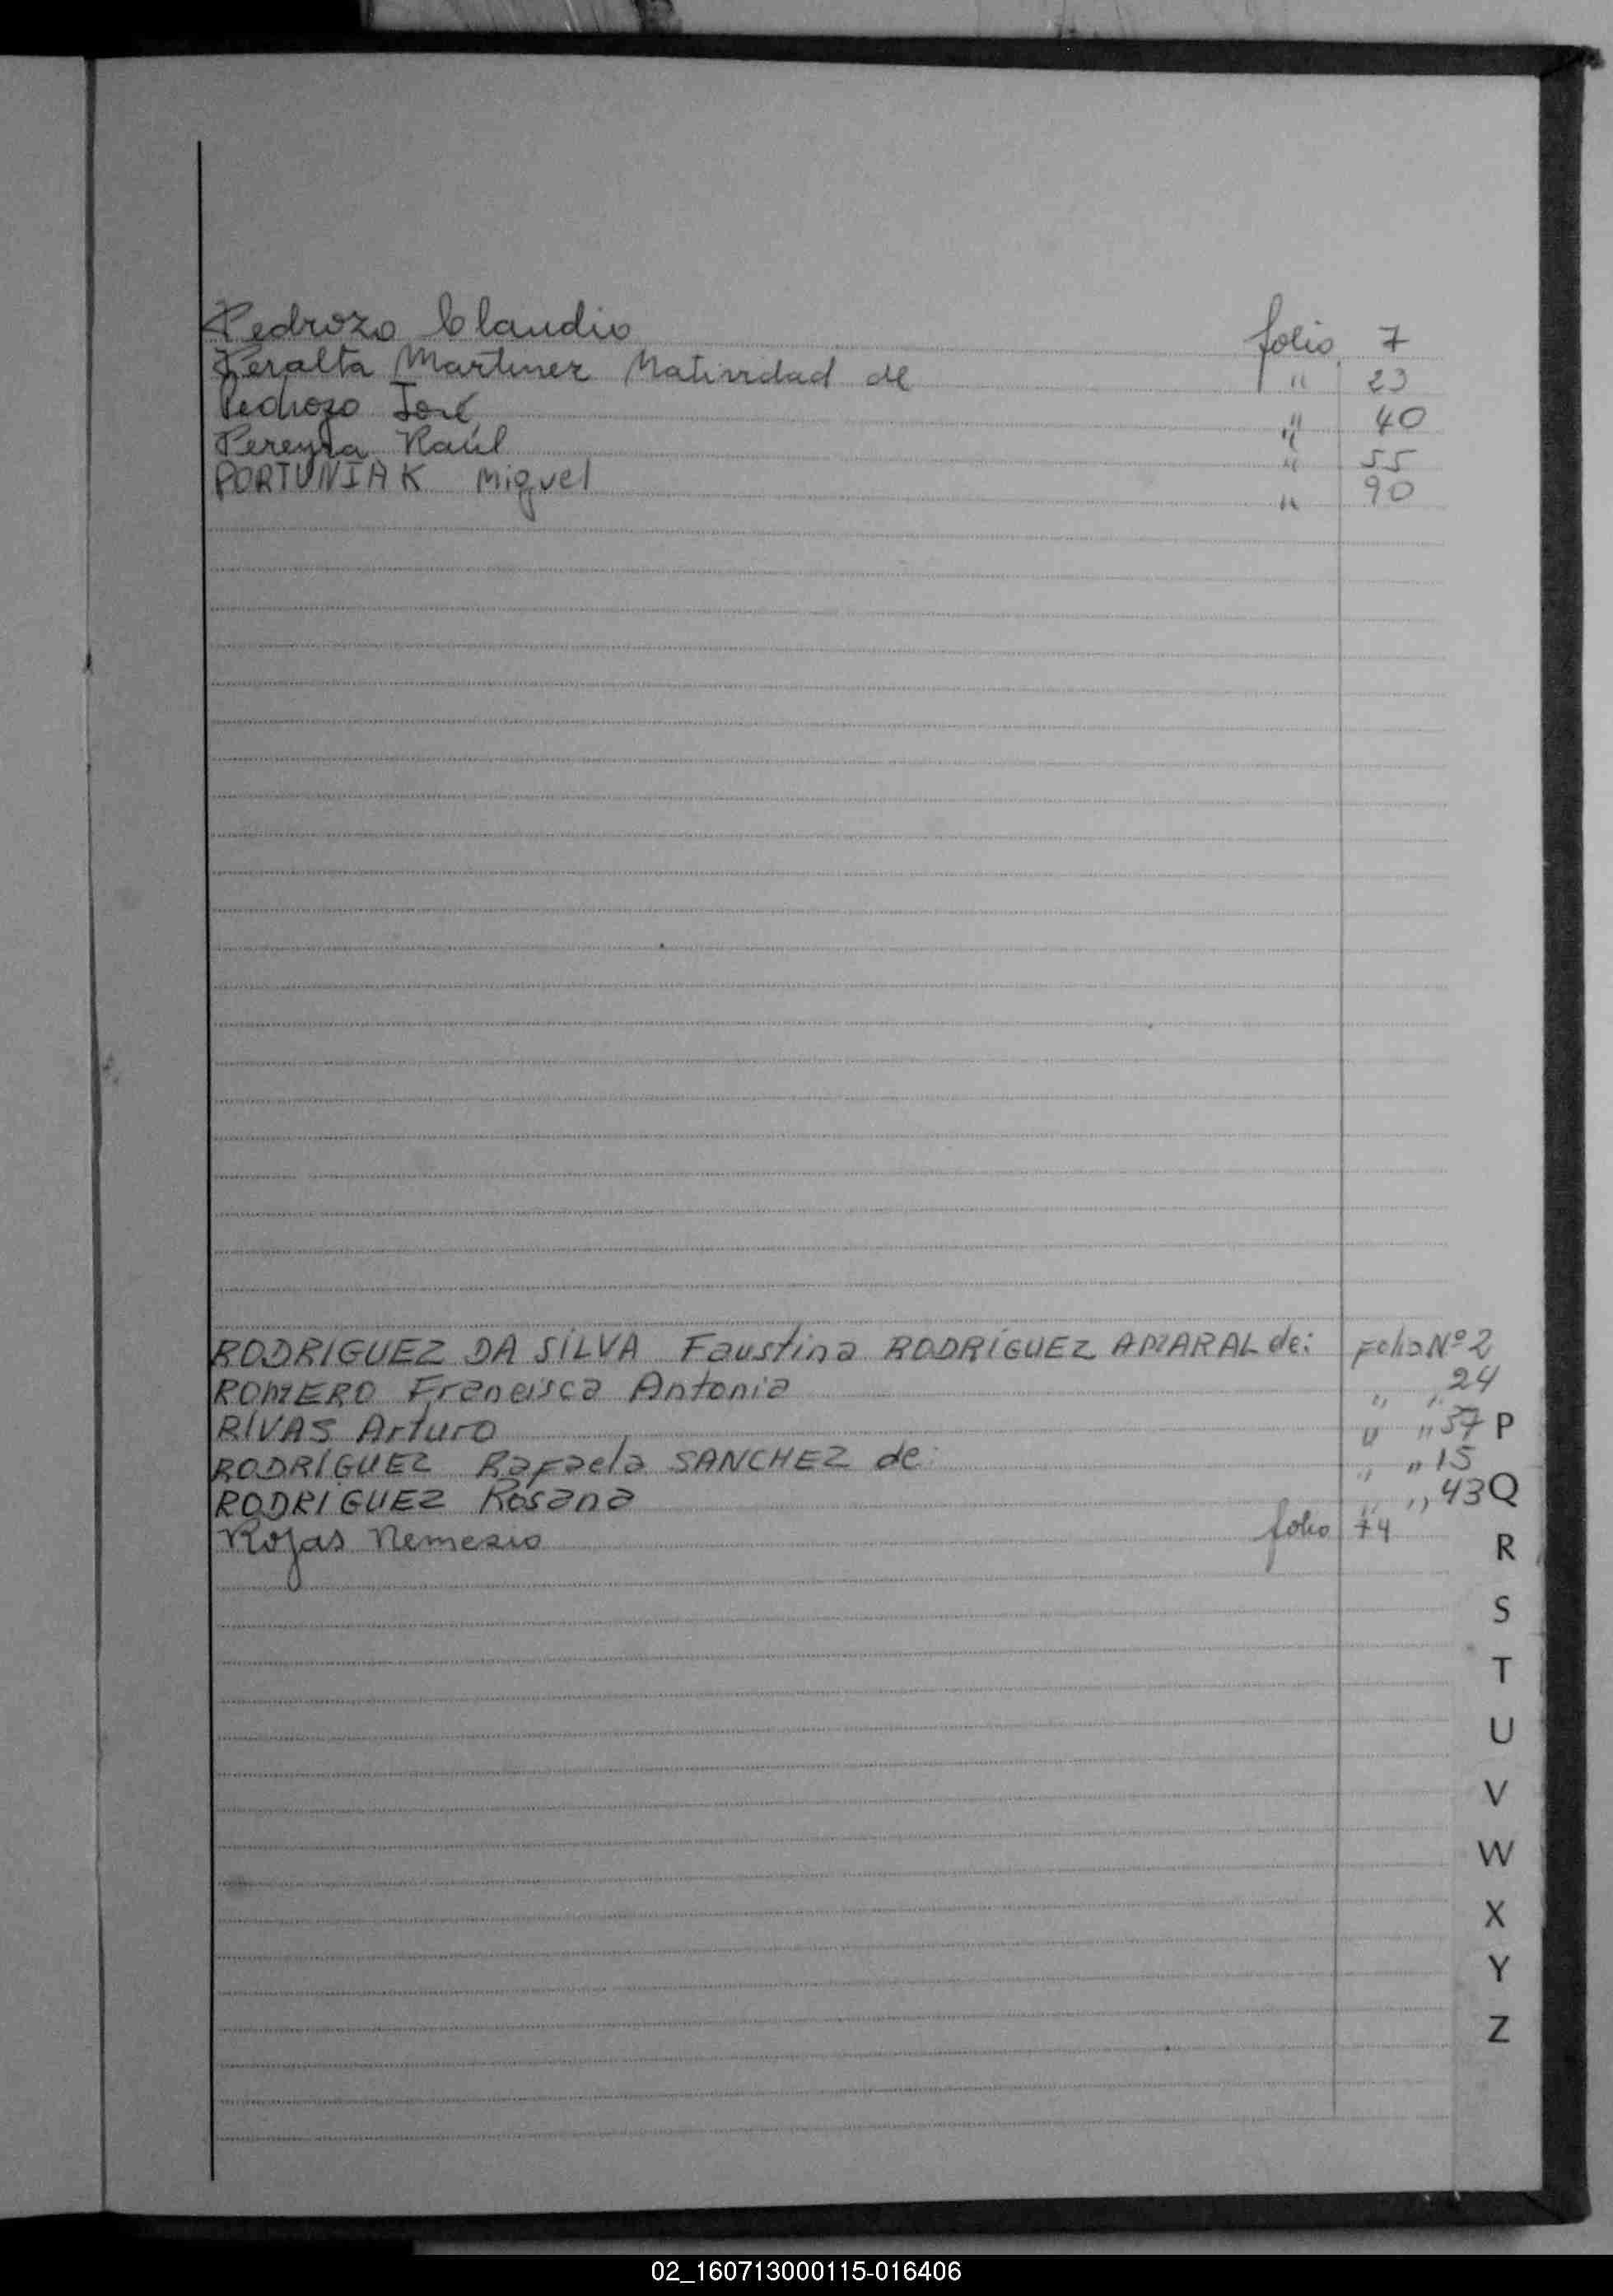 Pedrozo Claudio folio 7
Peralta Martinez Natividad de " 23
Pedrozo José " 40
Pereyra Raúl " 55
PORTUNIAK Miguel " 90
RODRIGUEZ DA SILVA Faustina RODRÍGUEZ AMARAL de: Folio Nº 2
ROMERO Francisca Antonia " " 24
RIVAS Arturo " " 37 P
RODRÍGUEZ Rafaela SANCHEZ de: " " 15
RODRIGUEZ Rosana " " 43 Q
Rojas Nemesio folio 74
R
S
T
U
V
W
X
Y
Z
02_160713000115-016406